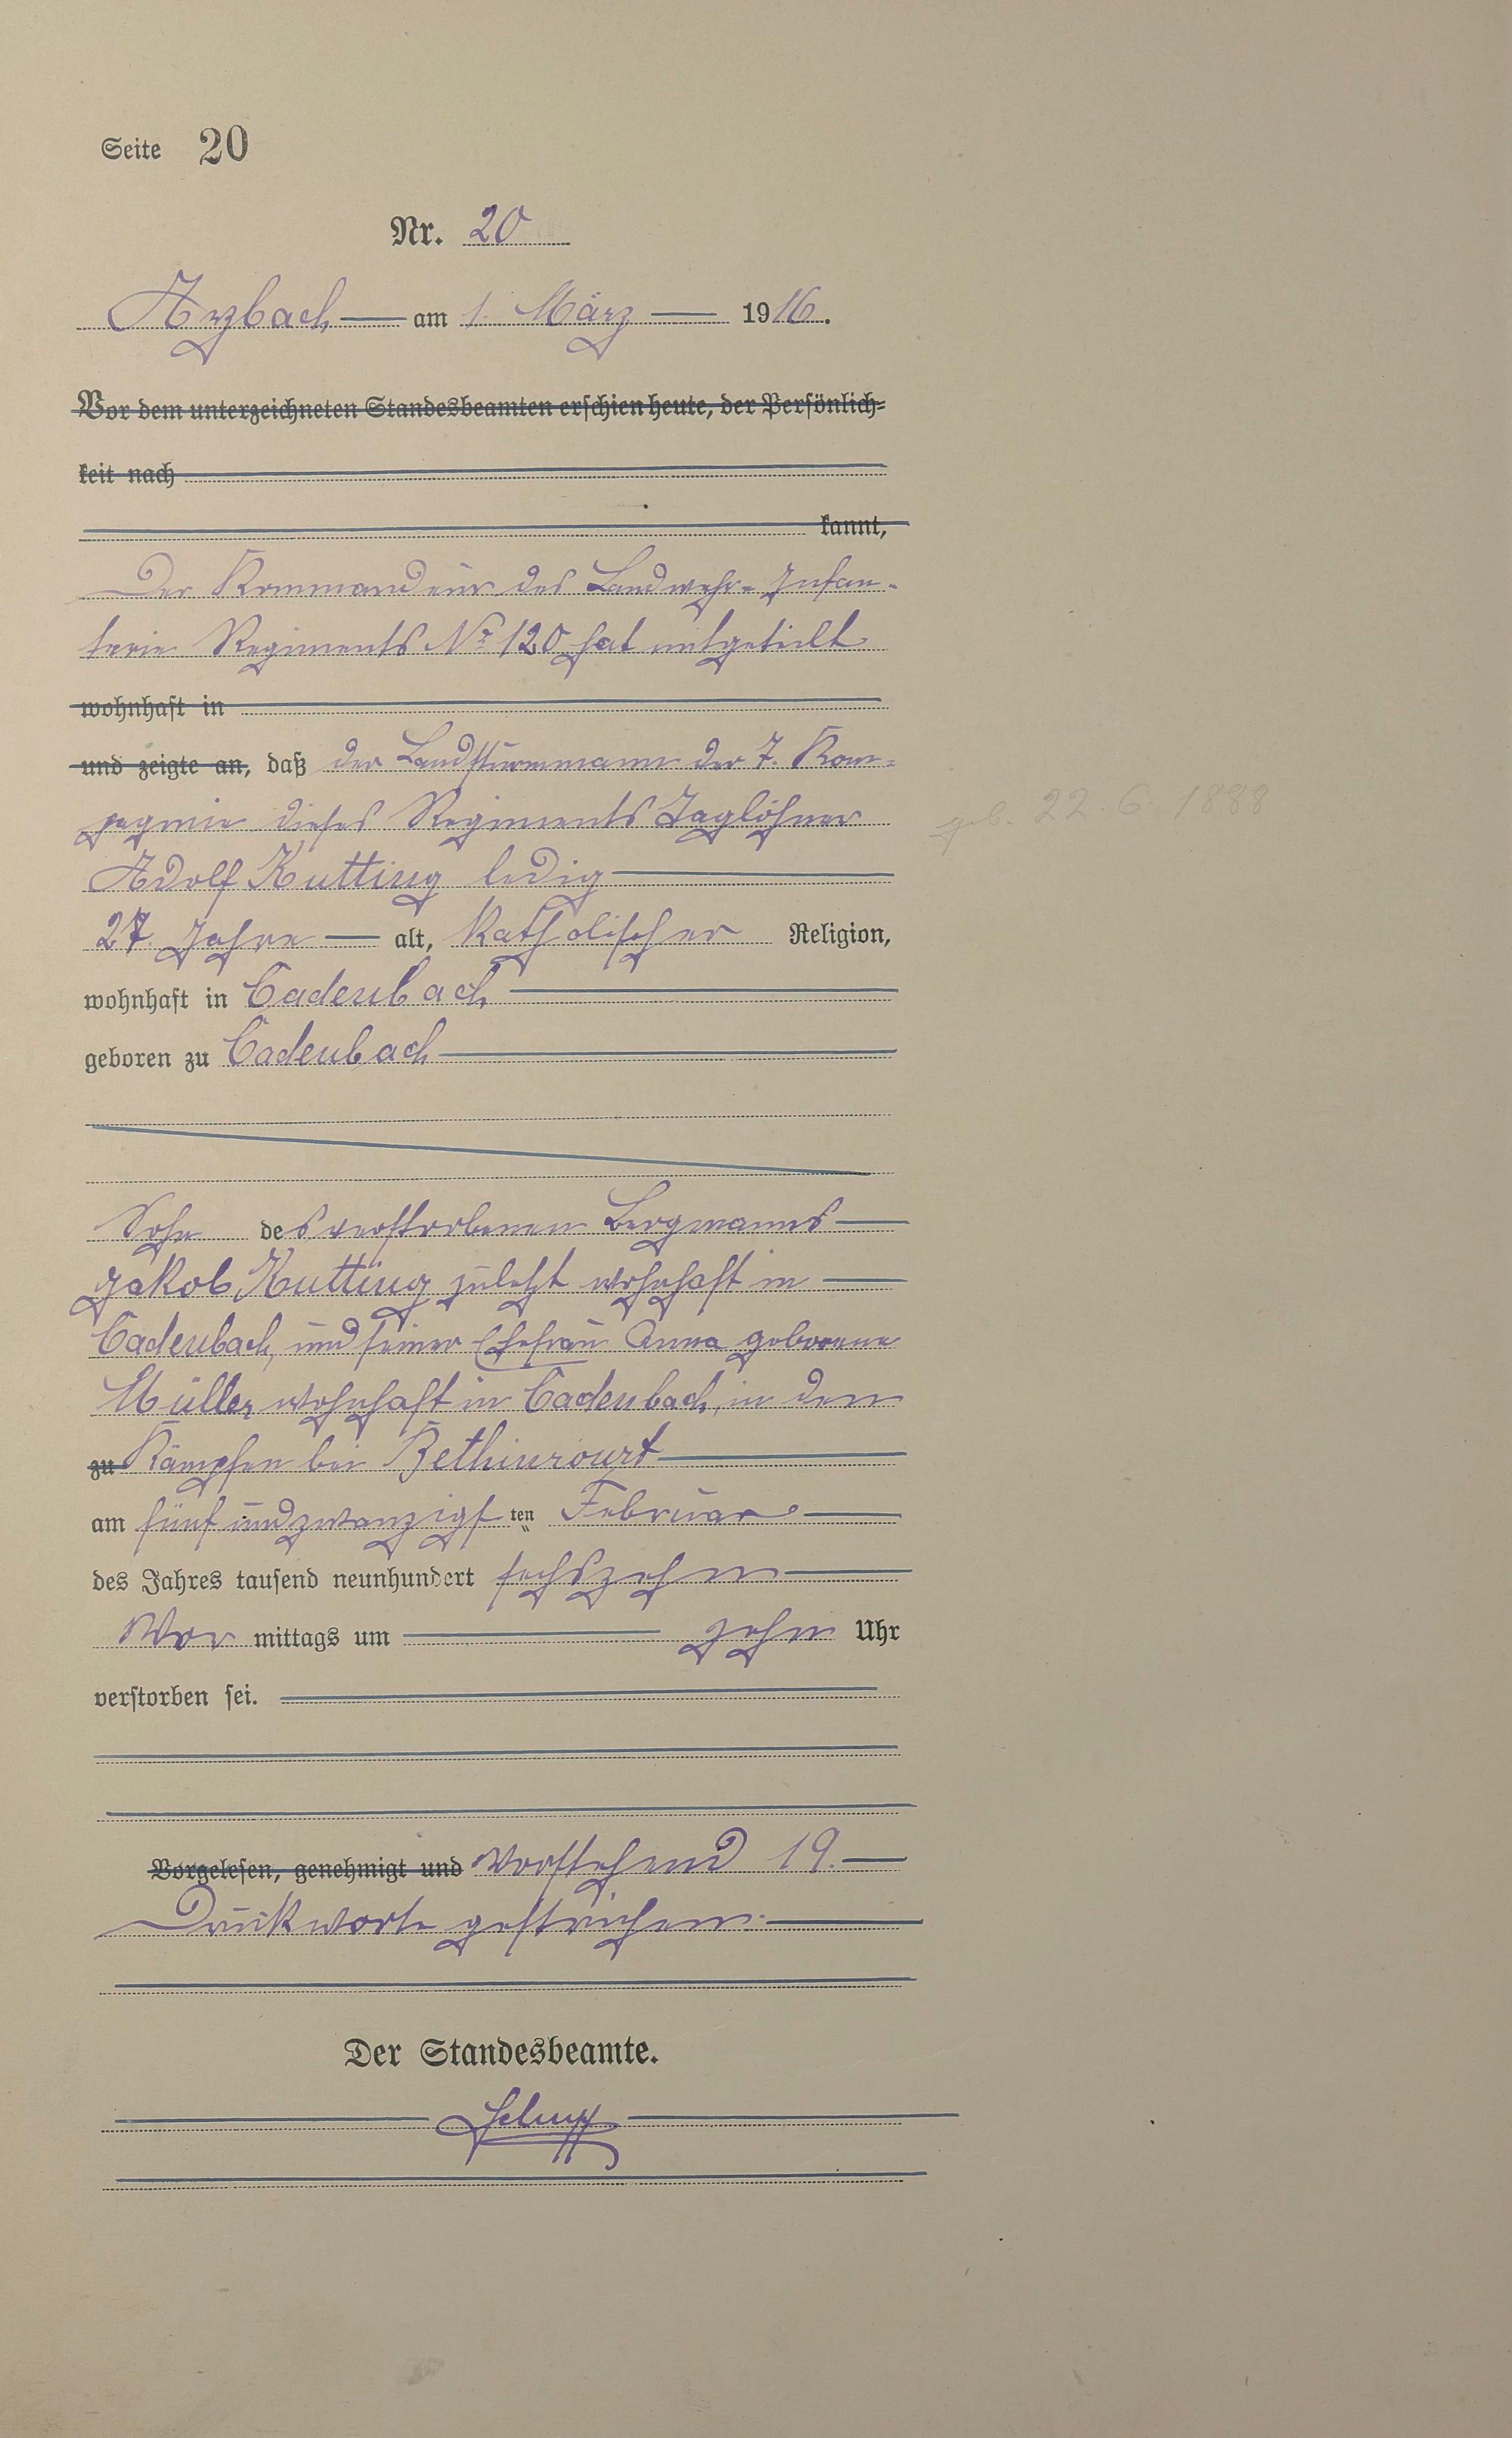 Seite 20
Nr. 20
Arzbach am 1. März 1916.
Vor dem unterzeichneten Standesbeamten erschien heute, der Persönlich-
keit nach
kannt,
Der Kommandeur des Landwehr-Infan-
terie Regiments No 120 hat mitgeteilt
wohnhaft in
und zeigte an, daß der Landsturmmann der 7. Kom-
pagnie dieses Regiments Taglöhner
geb. 22. 6. 1888
Adolf Kutting ledig
27 Jahre alt, katholischer Religion,
wohnhaft in Cadenbach
geboren zu Cadenbach
Sohn des verstorbenen Bergmanns
Jakob Kutting zuletzt wohnhaft in
Cadenbach, und seiner Ehefrau Anna geborene
Müller wohnhaft in Cadenbach, in den
zu Kämpfen bei Bethincourt
am fünf und zwanzigsten Februar
des Jahres tausend neunhundert sechszehn
Vor mittags um zehn Uhr
verstorben sei.
Vorgelesen, genehmigt und Vorstehend 19.
Druckworte gestrichen.
Der Standesbeamte.